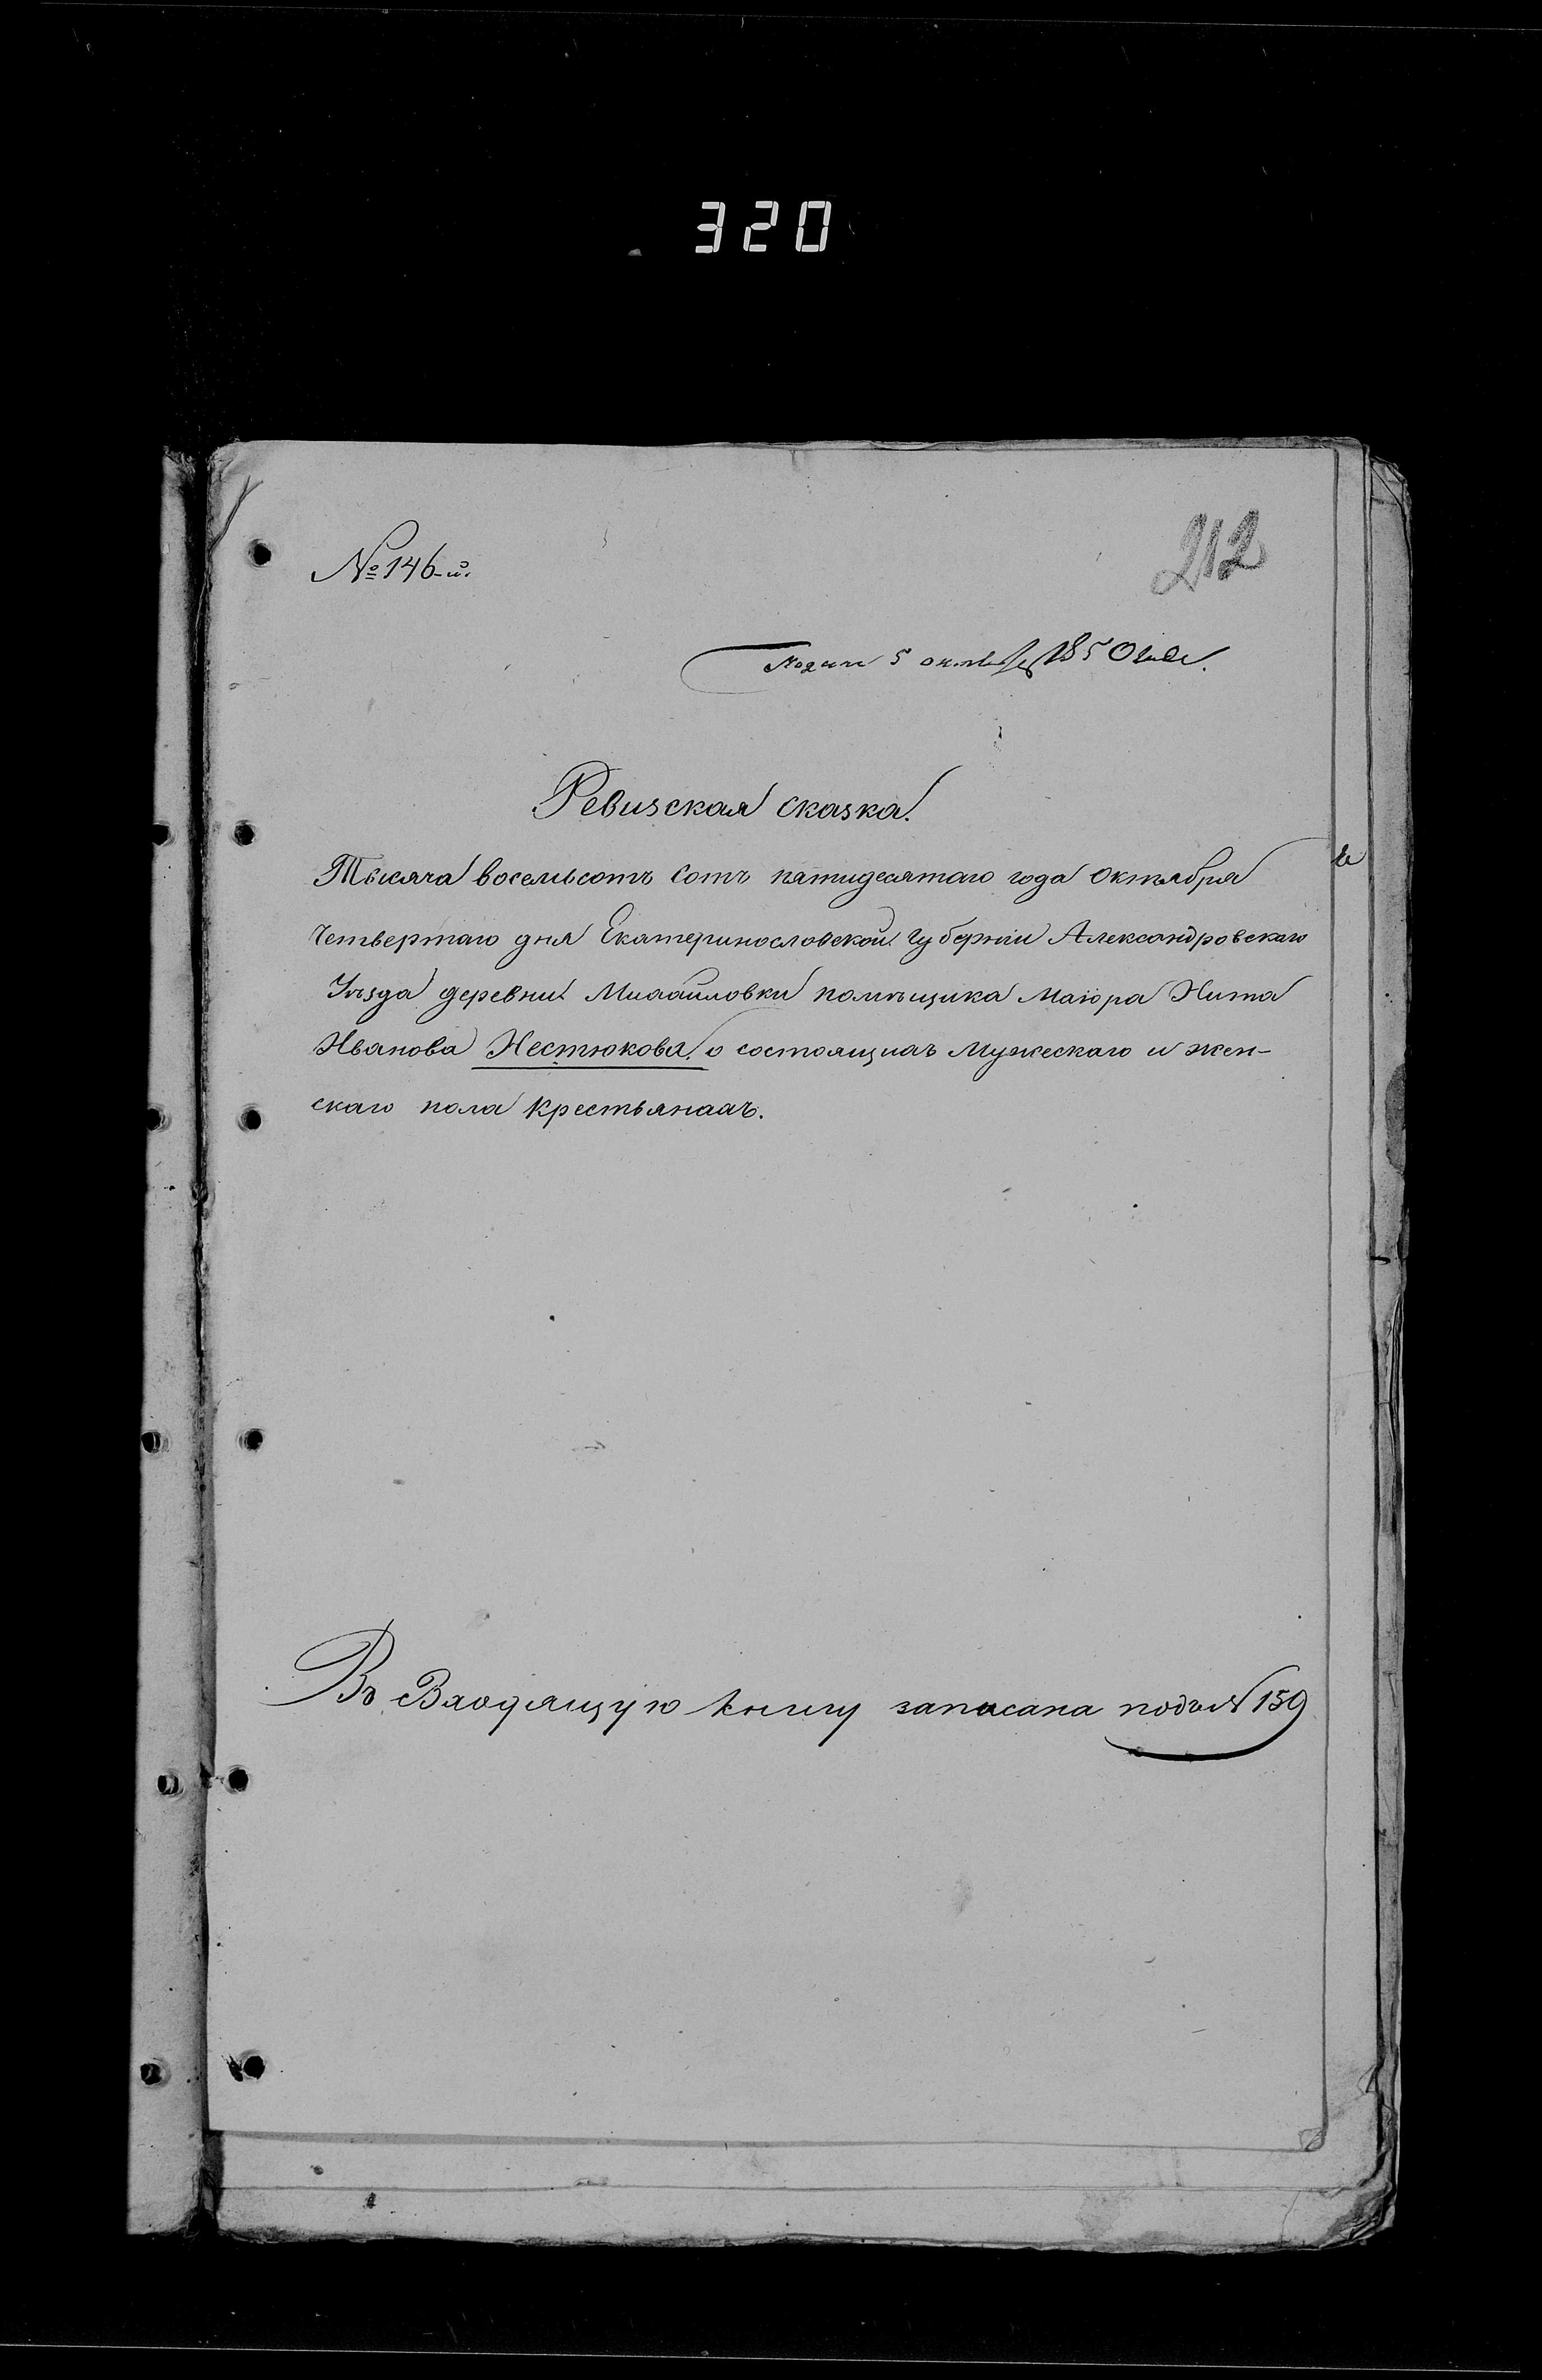 320
№ 146-й.
212
Подана 5 октября 1850 года.
Ревизская сказка.
Тысяча восемьсотъ сотъ пятидесятаго года Октября
Четвертаго дня Екатеринославской Губерніи Александровскаго
Уѣзда деревни Михайловки помѣщика Маіора
Иванова Нестюкова, о состоящихъ Мужескаго и жен-
скаго пола Крестьянахъ.
Въ Входящую книгу записана подъ № 159